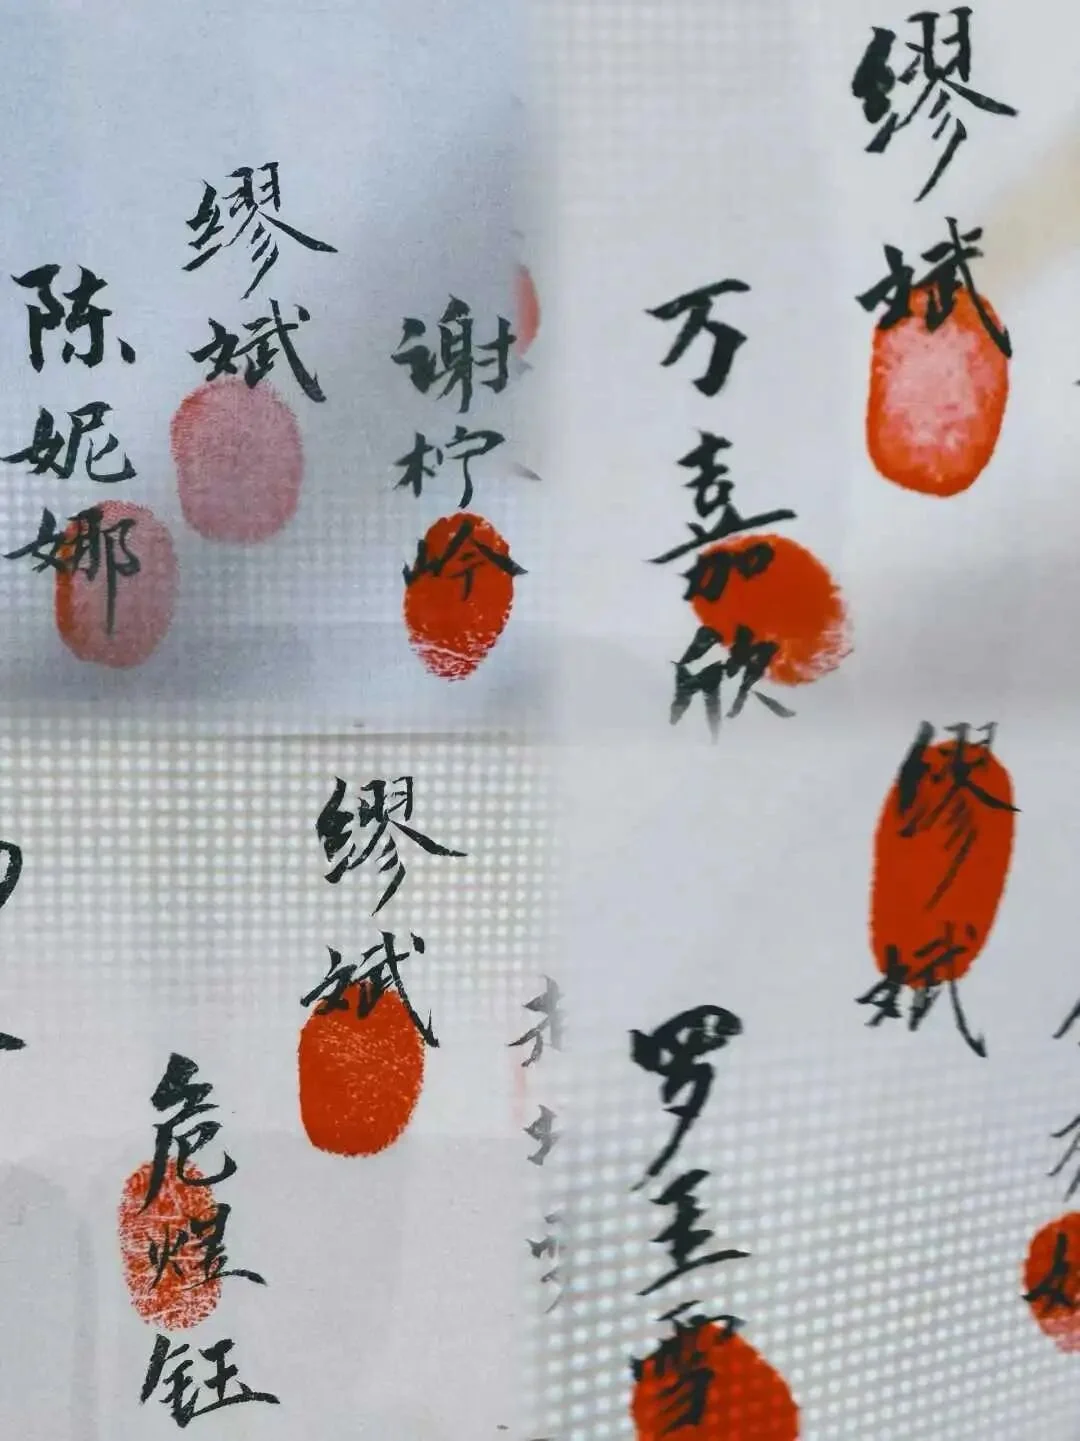 陈妮娜
缪斌
谢柠岭
万嘉欣
缪斌
危煜钰
缪斌
罗圭雪
缪斌